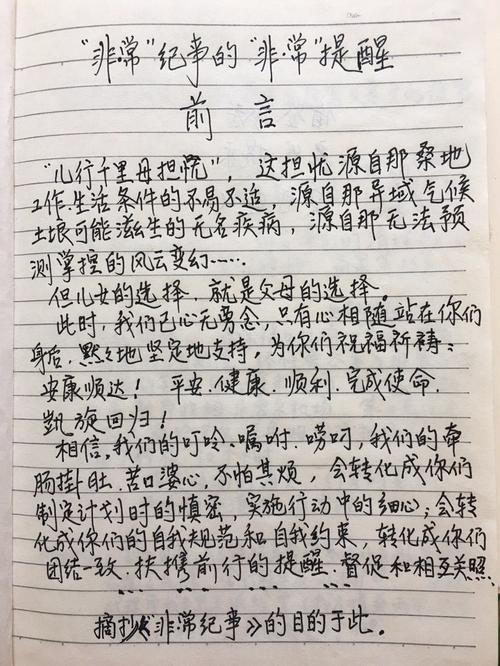 “非常”纪事的“非常”提醒
前言
“儿行千里母担忧”，这担忧源自那桑地
工作.生活条件的不易不适，源自那异域气候
土垠可能滋生的无名疾病，源自那无法预
测掌控的风云变幻……
但儿女的选择.就是父母的选择。
此时，我们已心无旁念，只有心相随.站在你们
身后.默々地坚定地支持，为你们祝福祈祷：
安康顺达！平安.健康.顺利.完成使命.
凯旋回归！
相信.我们的叮呤.嘱咐.唠叨，我们的牵
肠挂肚.苦口婆心，不怕其烦，会转化成你们
制定计划时的慎密，实施行动中的细心；会转
化成你们的自我规范和自我约束，转化成你们
团结一致.扶携前行的提醒.督促和相互关照.
摘抄《非常纪事》的目的于此.